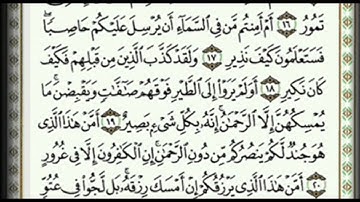 تَمُورُ ١٦ أَمْ أَمِنتُم مَّن فِي ٱلسَّمَآءِ أَن يُرْسِلَ عَلَيْكُمْ حَاصِبًاۖ
فَسَتَعْلَمُونَ كَيْفَ نَذِيرِ ١٧ وَلَقَدْ كَذَّبَ ٱلَّذِينَ مِن قَبْلِهِمْ فَكَيْفَ
كَانَ نَكِيرِ ١٨ أَوَلَمْ يَرَوْا۟ إِلَى ٱلطَّيْرِ فَوْقَهُمْ صَٰٓفَّٰتٍ وَيَقْبِضْنَۚ مَا
يُمْسِكُهُنَّ إِلَّا ٱلرَّحْمَٰنُۚ إِنَّهُۥ بِكُلِّ شَىْءٍۭ بَصِيرٌ ١٩ أَمَّنْ هَٰذَا ٱلَّذِى
هُوَ جُندٌ لَّكُمْ يَنصُرُكُم مِّن دُونِ ٱلرَّحْمَٰنِۚ إِنِ ٱلْكَٰفِرُونَ إِلَّا فِى غُرُورٍ
٢٠ أَمَّنْ هَٰذَا ٱلَّذِى يَرْزُقُكُمْ إِنْ أَمْسَكَ رِزْقَهُۥۚ بَل لَّجُّوا۟ فِى عُتُوٍّ